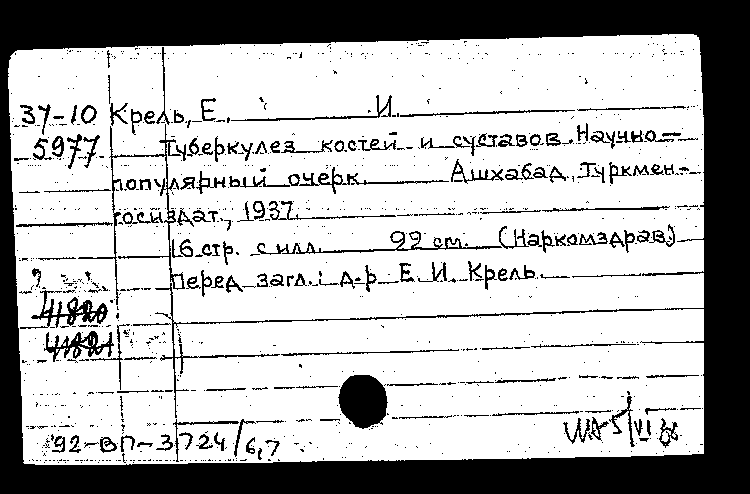 37-10 Крель, Е. И.
5977 Туберкулез костей и суставов. Научно-
популярный очерк. Ашхабад, Туркмен-
госиздат, 1937.
16 стр. с илл. 22 cm. (Наркомздрав)
Перед загл.: д-р Е. И. Крель.
41820
41821
92-ВП-3724/6,7
5/VI